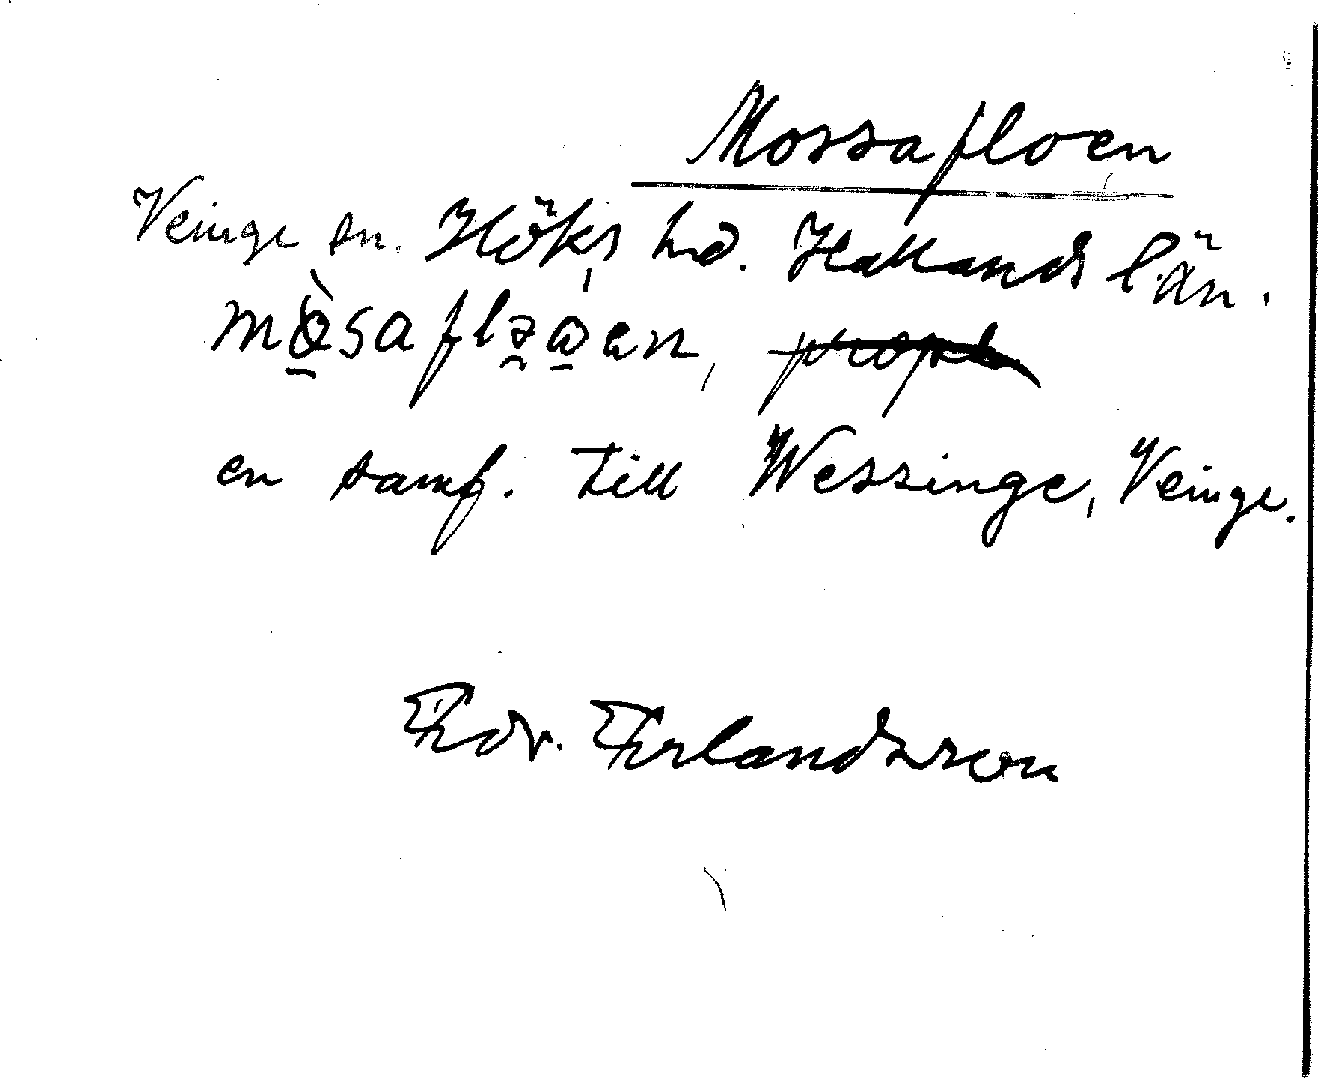 Mossafloen
Veinge sn. Höks hd. Hallands län.
en samf. till Wessinge, Veinge.
Edv. Erlandsson